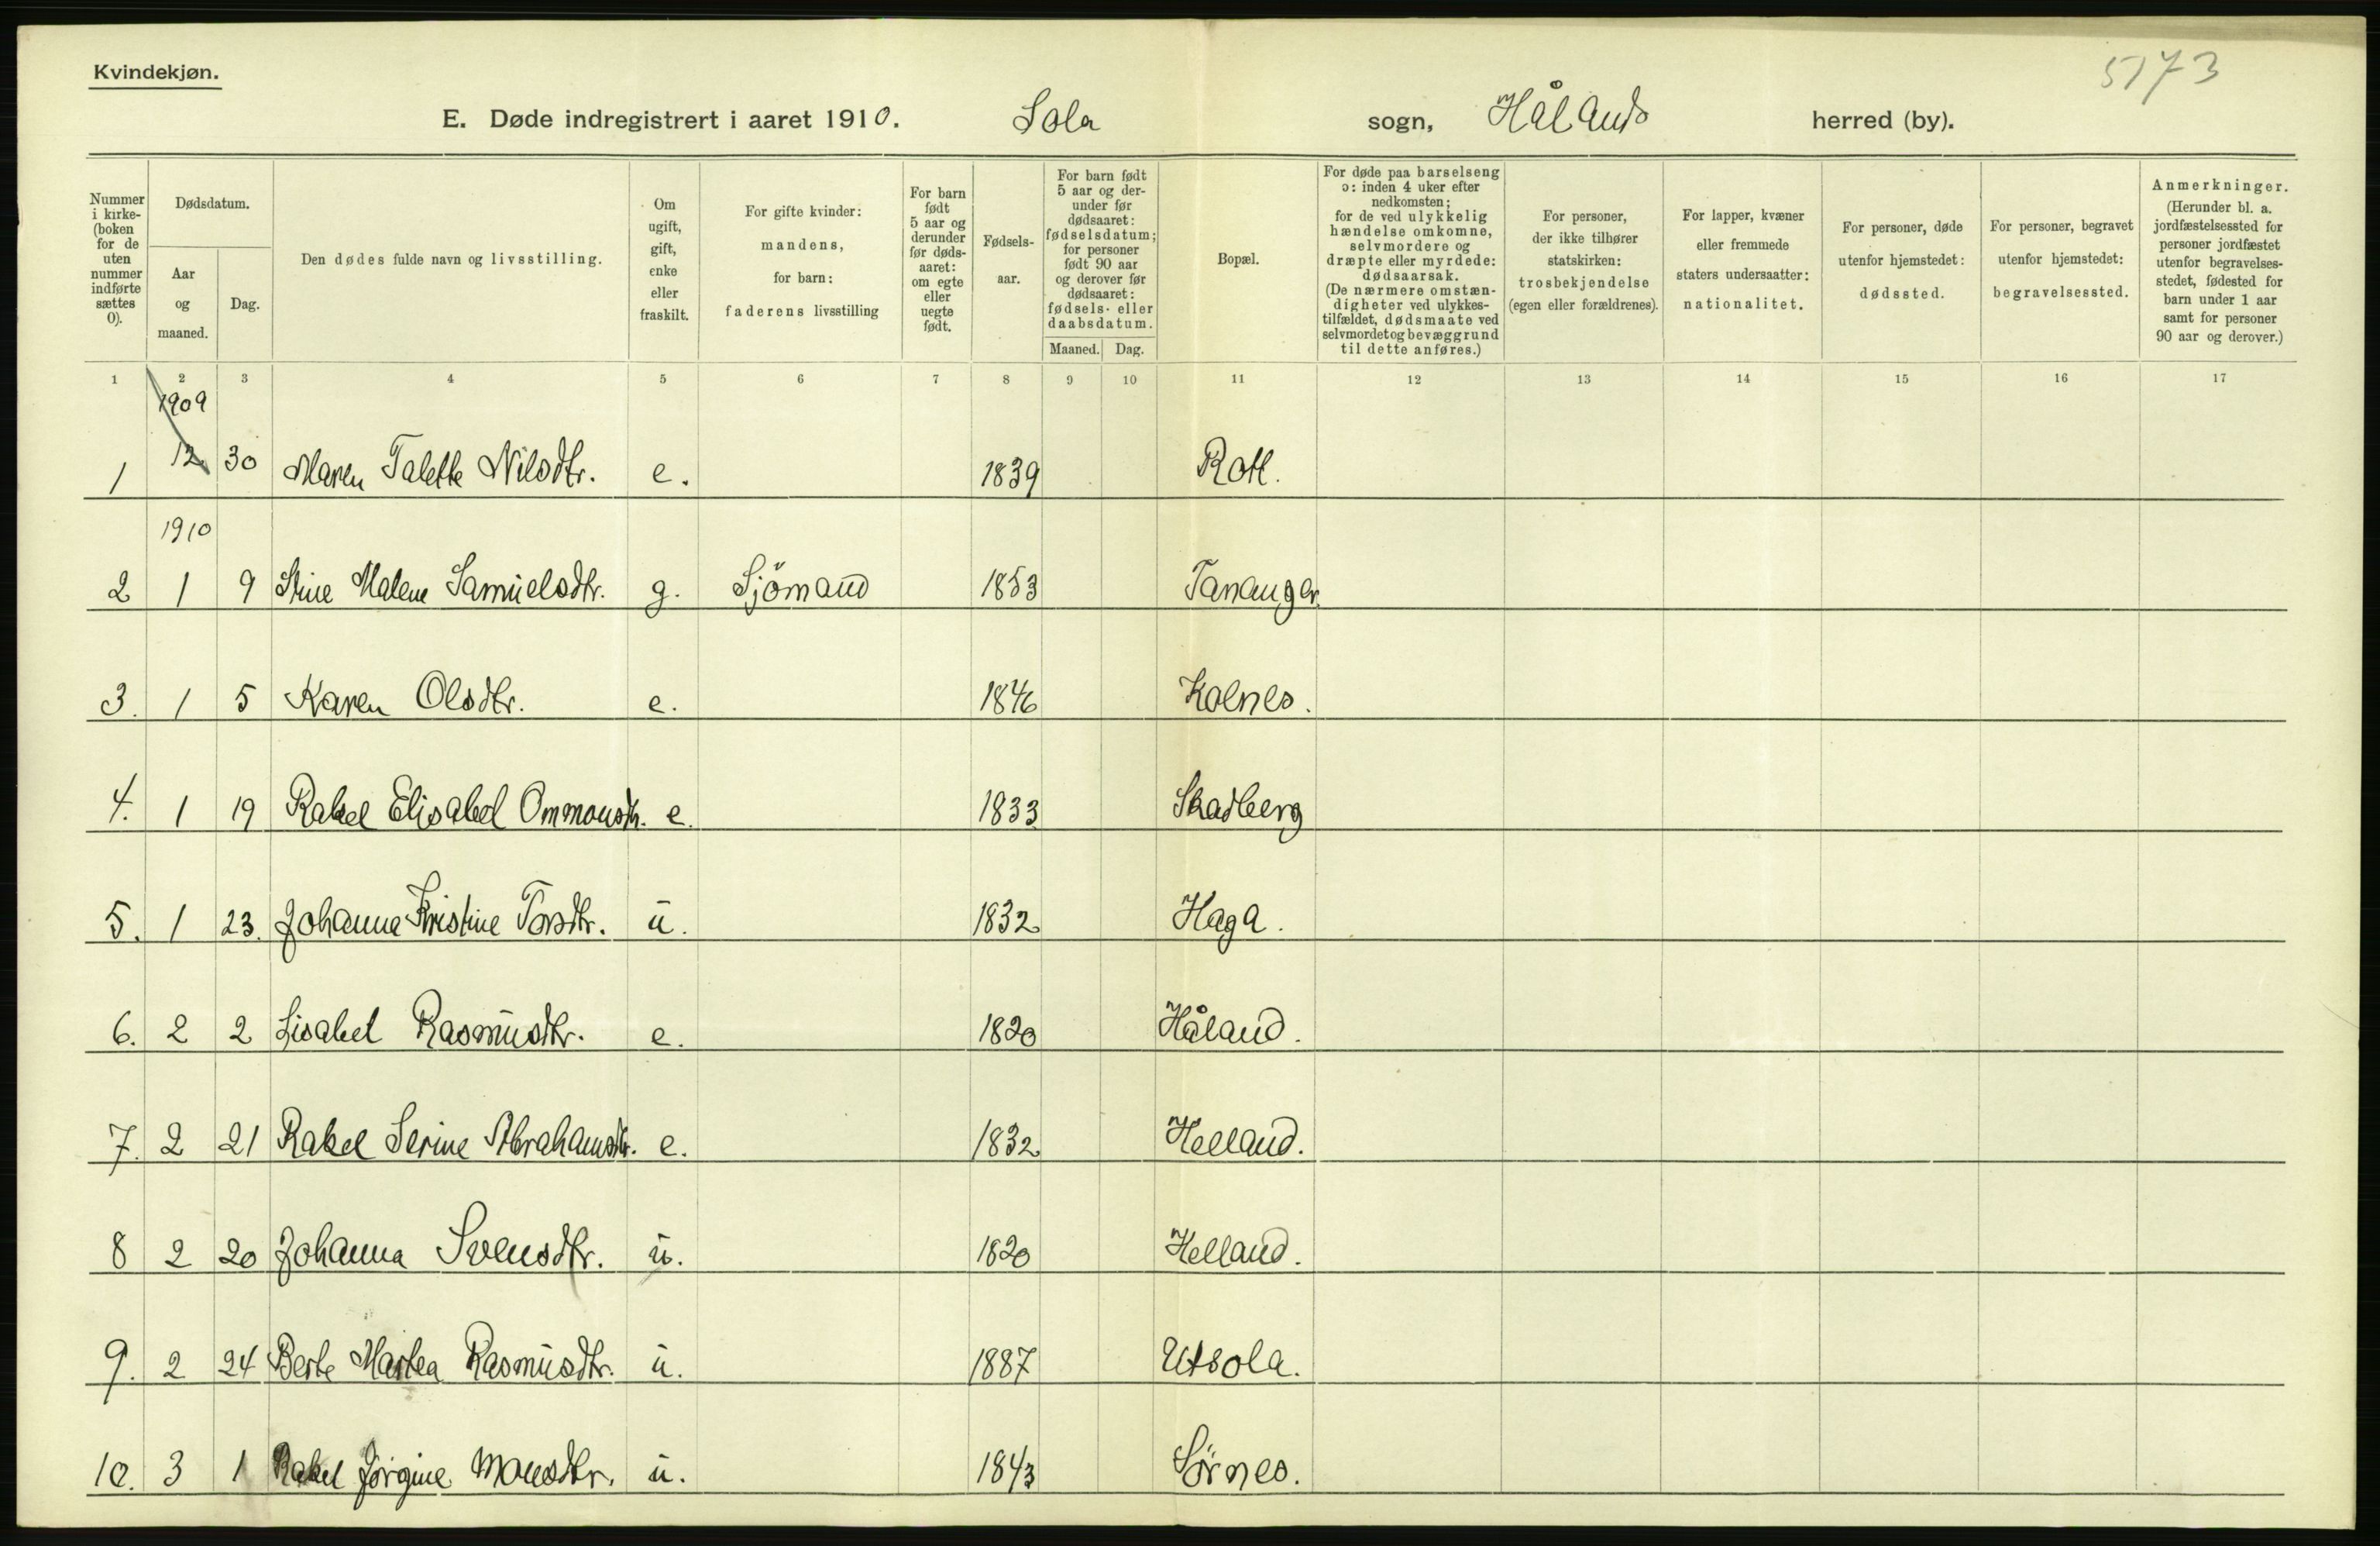 Kvindekjøn.
5173
E. Døde indregistrert i aaret 1910. Sola sogn, Håland herred (by).
Nummer i kirke- (boken for de uten nummer indførte sættes 0).
Dødsdatum.
Aar og maaned.
Dag.
Den dødes fulde navn og livsstilling.
Om ugift, gift, enke eller fraskilt.
For gifte kvinder: mandens, for barn: faderens livsstilling
For barn født 5 aar og derunder før døds- aaret: om egte eller uegte født.
Fødsels- aar.
For barn født 5 aar og der- under før dødsaaret: fødselsdatum; for personer født 90 aar og derover før dødsaaret: fødsels- eller daabsdatum.
Maaned. Dag.
Bopæl.
For døde paa barselseng ɔ: inden 4 uker efter nedkomsten; for de ved ulykkelig hændelse omkomne, selvmordere og dræpte eller myrdede: dødsaarsak. (De nærmere omstæn- digheter ved ulykkes- tilfældet, dødsmaate ved selvmord og bevæggrund til dette anføres.)
For personer, der ikke tilhører statskirken: trosbekjendelse (egen eller forældrenes).
For lapper, kvæner eller fremmede staters undersaatter: nationalitet.
For personer, døde utenfor hjemstedet: dødssted.
For personer, begravet utenfor hjemstedet: begravelsessted.
Anmerkninger. (Herunder bl. a. jordfæstelsessted for personer jordfæstet utenfor begravelses- stedet, fødested for barn under 1 aar samt for personer 90 aar og derover.)
1 2 3 4 5 6 7 8 9 10 11 12 13 14 15 16 17
1909
1 12 30 Maren Talette Nilsdtr. e. 1839 Rott.
1910
2 1 9 Stine Malene Samuelsdtr. g. Sjömand 1853 Tananger
3. 1 5 Karen Olsdtr. e. 1846 Kolnes.
4. 1 19 Rakel Elisabet Ommonsdtr. e. 1833 Skadberg
5. 1 23. Johanna Kristine Torsdtr. u. 1832 Haga.
6. 2 2 Lisabet Rasmusdtr. e. 1820 Håland.
7. 2 21 Rakel Serine Abrahamsdtr. e. 1832 Helland.
8 2 20 Johanna Svensdtr. u. 1820 Helland.
9. 2 24 Berte Martea Rasmusdtr. u. 1887 Utsola.
10. 3 1 Rakel Jørgine Monsdtr. u. 1843 Sörnes.